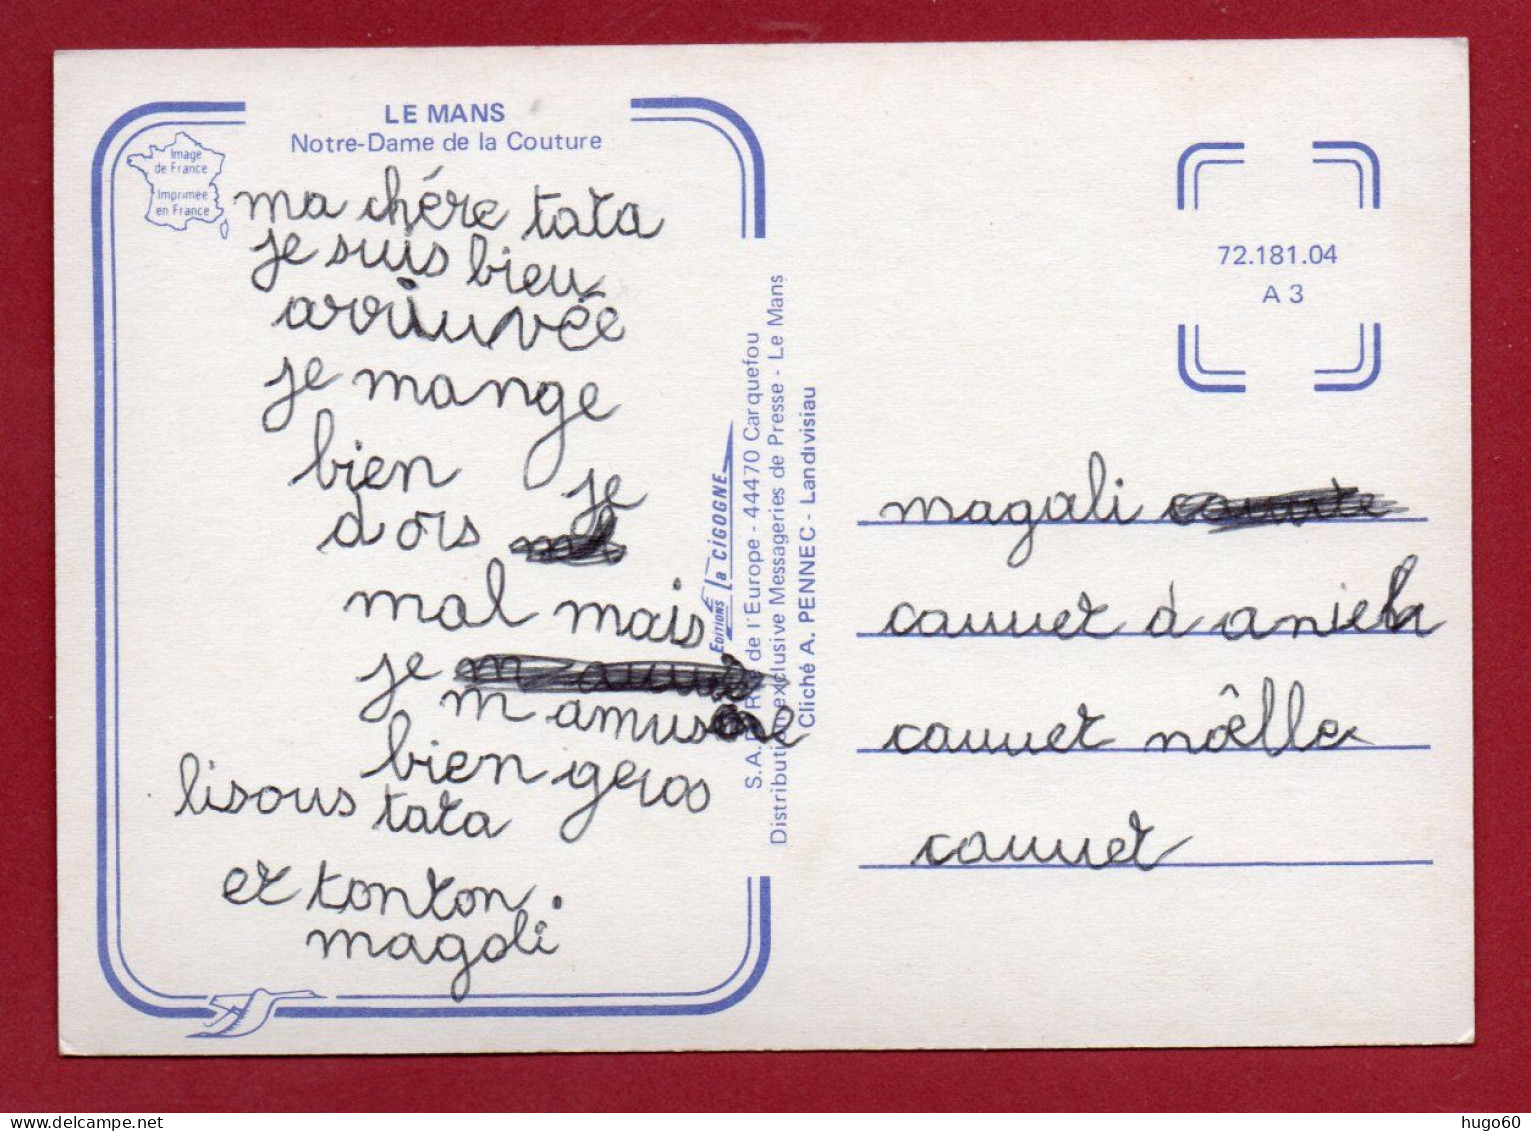 LE MANS
Notre-Dame de la Couture
Image
de France
Imprimée
en France
ma chére tata
je suis bieu
arriuvée
je mange
bien je
dors
mal mais
je
m amuse
bien geros
lisous tata
et tonton.
magali
EDITIONS la CIGOGNE
de l'Europe - 44470 Carquefou
Distribution exclusive Messageries de Presse - Le Mans
Cliché A. PENNEC - Landivisiau
72.181.04
A 3
magali
cauuet daniel
cauuet nôelle
cauuet
hugo60